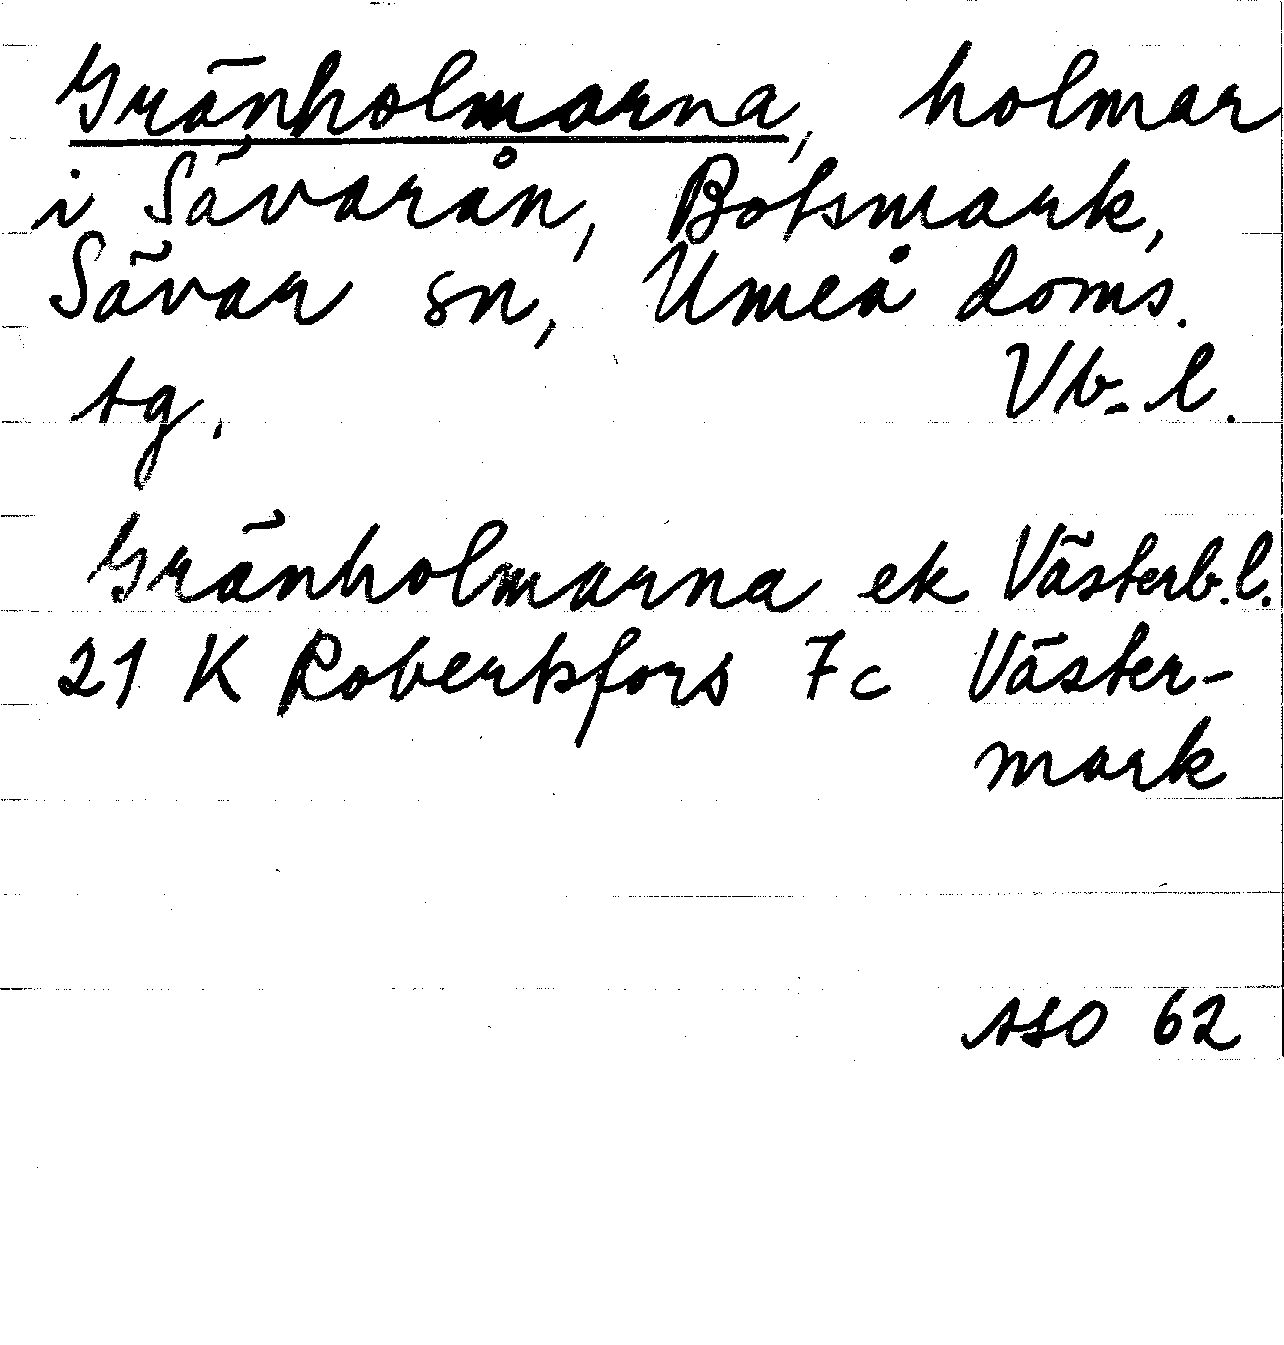 Gränholmarna, holmar
i Sävarån, Botsmark,
Sävar sn, Umeå doms.
tg. Vb. l.
Gränholmarna ek Västerb. l.
21 K Robertsfors 7c Väster-
mark
ASO 62